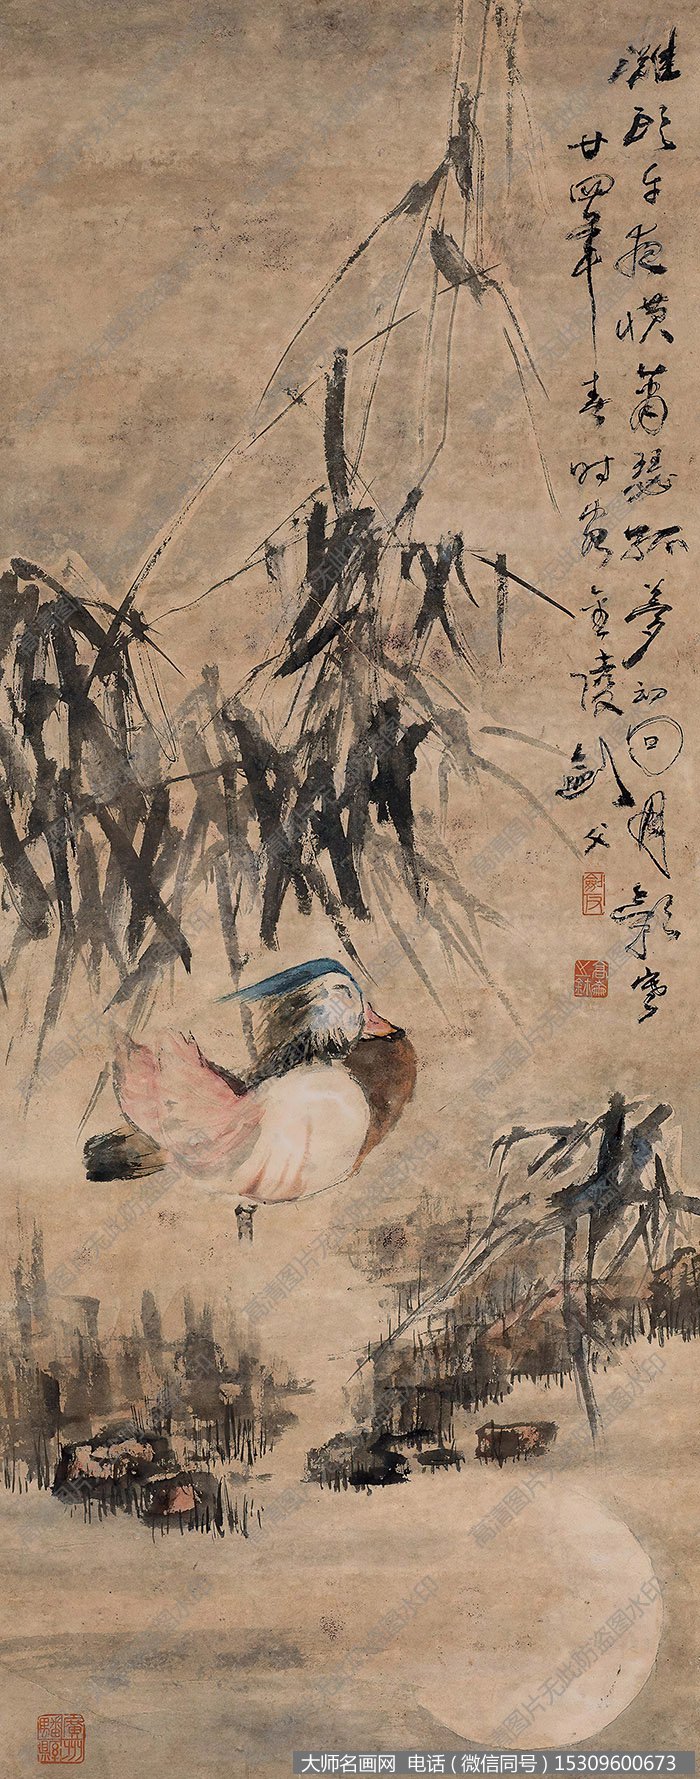 灘頭午夜蕭瑟孤夢初回月影寒
廿四年春時客金陵劍父
高清图片无此防盗图水印
大师名画网 电话（微信同号）15309600673